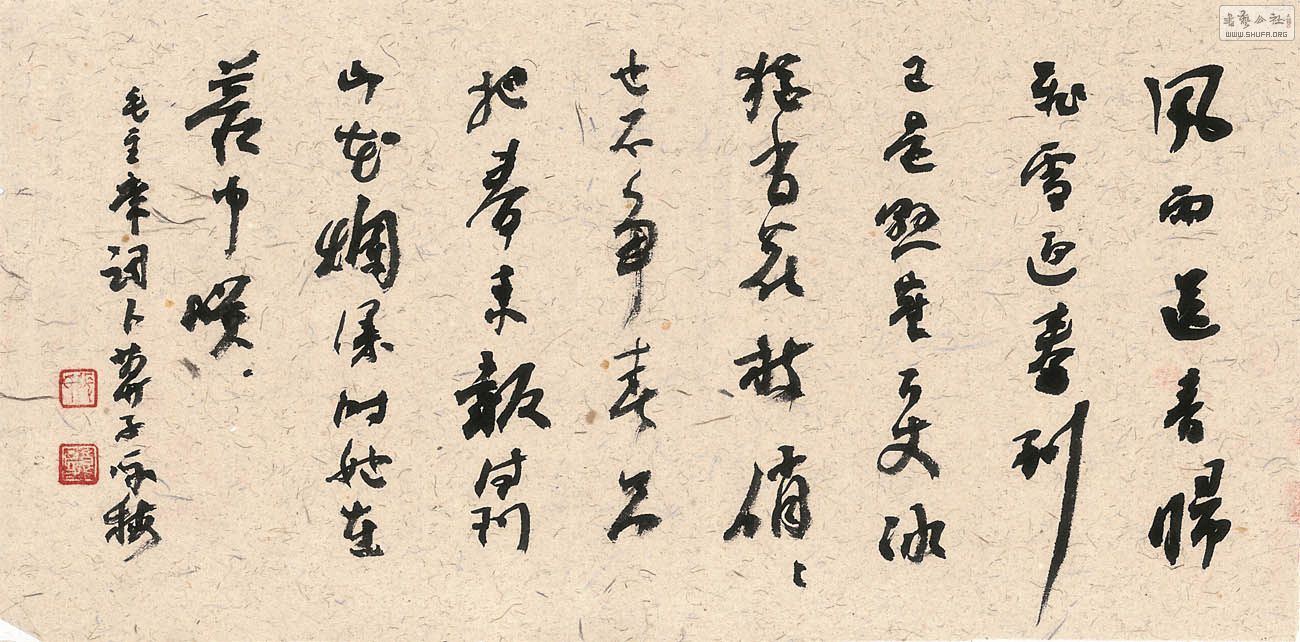 風雨送春歸
飛雪迎春到
已是懸崖百丈冰
猶有花枝俏〻
也不爭春只
把春來報待到
山花爛漫時她在
叢中咲
毛主席詞卜算子咏梅
書藝公社
WWW.SHUFA.ORG